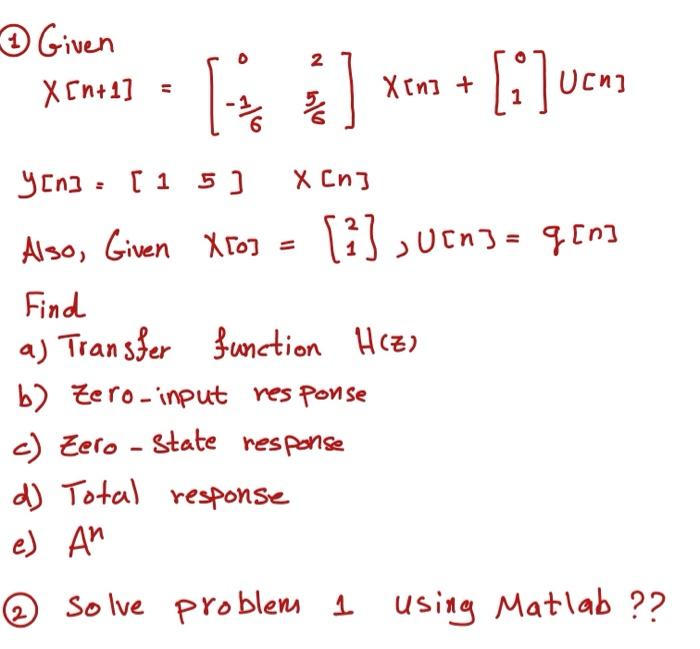 ① Given
X[n+1] = [ 0 2 ; -1/6 5/6 ] X[n] + [ 0 ; 1 ] U[n]
y[n] = [ 1 5 ] X[n]
Also, Given X[0] = [ 2 ; 1 ] , U[n] = q[n]
Find
a) Transfer function H(z)
b) Zero-input response
c) Zero - State response
d) Total response
e) Aⁿ
② Solve problem 1 using Matlab ??